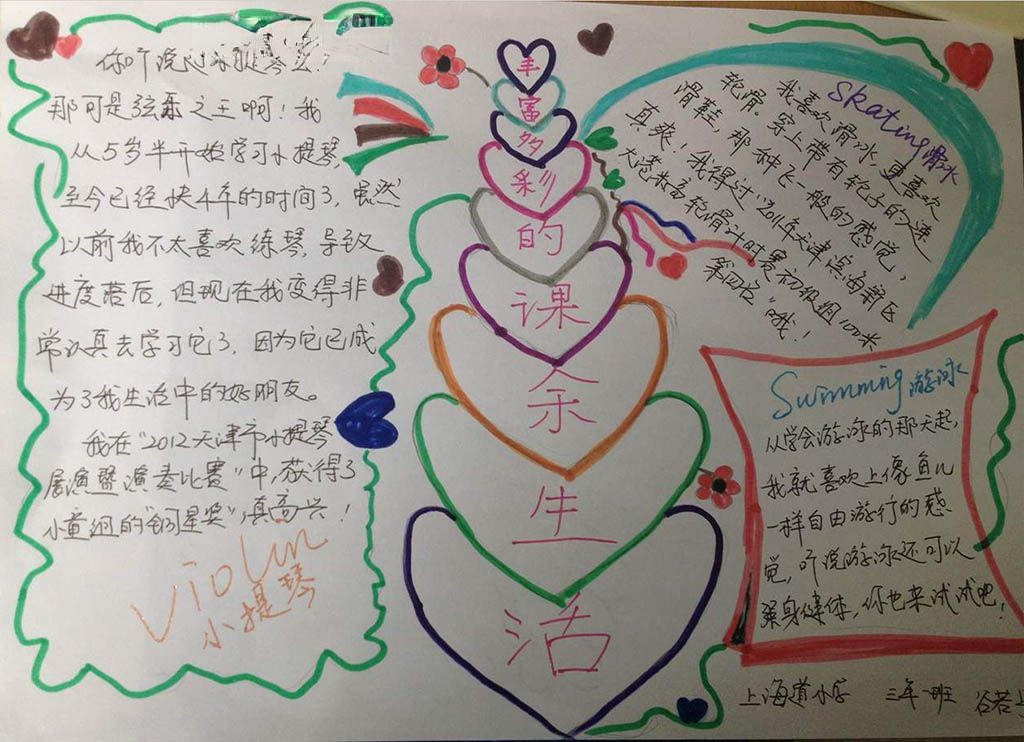 你听说过小提琴么?
那可是弦乐之王啊!我
从5岁半开始学习小提琴,
至今已经快4年的时间了,虽然
以前我不太喜欢练琴,导致
进度落后,但现在我变得非
常认真去学习它了,因为它已成
为了我生活中的好朋友。
我在“2012天津市小提琴
展演暨演奏比赛”中,获得了
小童组的“银星奖”,真高兴!
Violin
小提琴
丰
富
多
彩
的
课
余
生
活
Skating滑冰
我喜欢滑冰,更喜欢
轮滑。穿上带有轮子的速
滑鞋,那种飞一般的感觉,
真爽!我得过“2011年天津滨海新区
大港杯高轮滑计时赛初级组100米
第四名”哦!
Swimming游泳
从学会游泳的那天起,
我就喜欢上像鱼儿
一样自由游行的感
觉,听说游泳还可以
强身健体,你也来试试吧!
上海道小学 三年一班 谷若